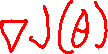 ∇J(θ)